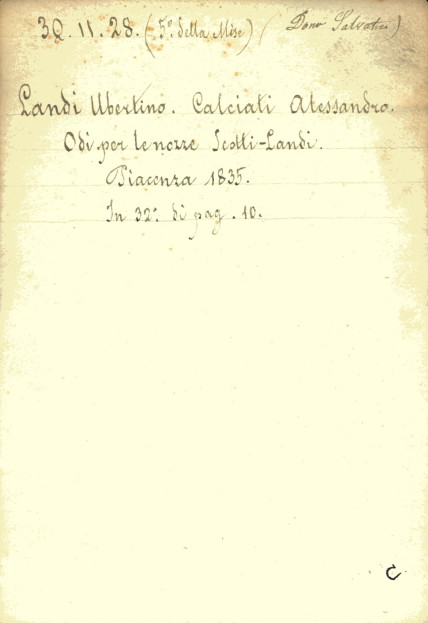 3Q. 11. 28. (5º della Misc) (Dono Salvatici)
Landi Ubertino. Calciati Alessandro.
Odi per le nozze Scotti-Landi.
Piacenza 1835.
In 32º di pag. 10.
C